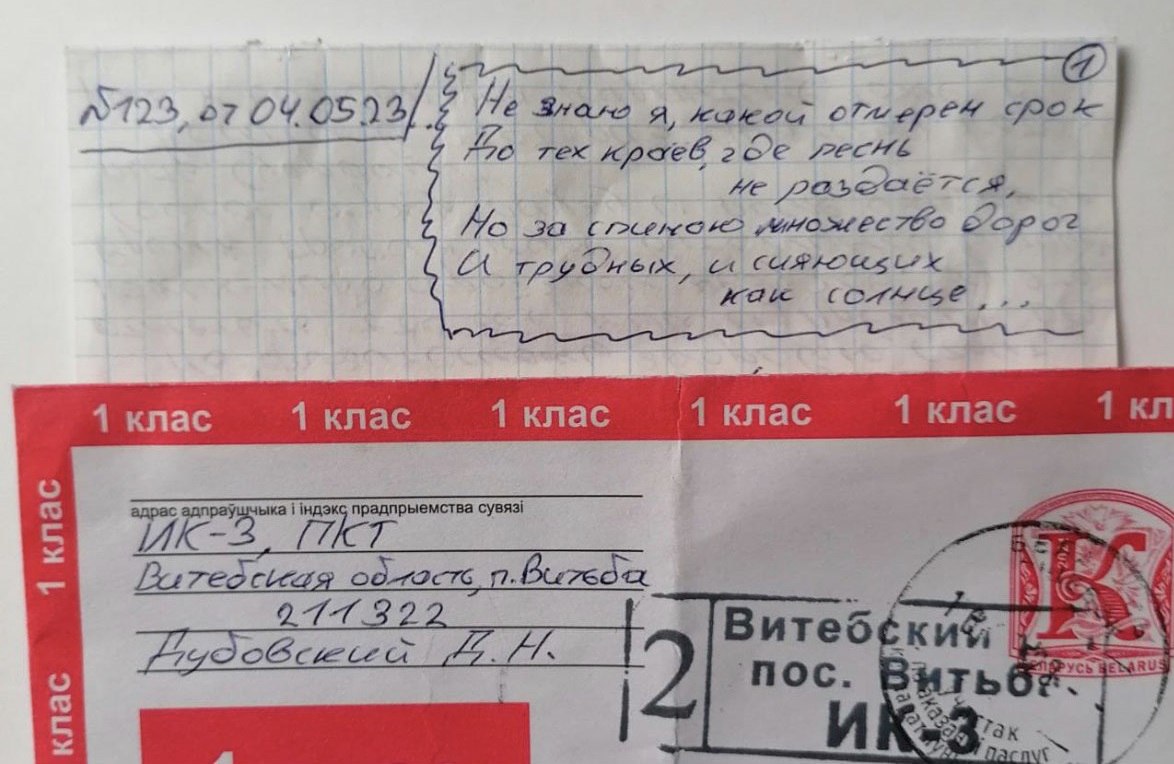 1
№123, от 04.05.23/..
Не знаю я, какой отмерен срок
До тех краёв, где песнь
не раздаётся,
Но за спиною множество дорог
И трудных, и сияющих
как солнце...
1 клас 1 клас 1 клас 1 клас 1 клас 1 кл
1 клас
клас
адрас адпраўшчыка і індэкс прадпрыемства сувязі
ИК-3, ПКТ
Витебская область, п. Витьба
211322
Дубовский Д.Н.
2
Витебский
пос. Витьба
ИК-3
К
БЕЛАРУСЬ BELARUS